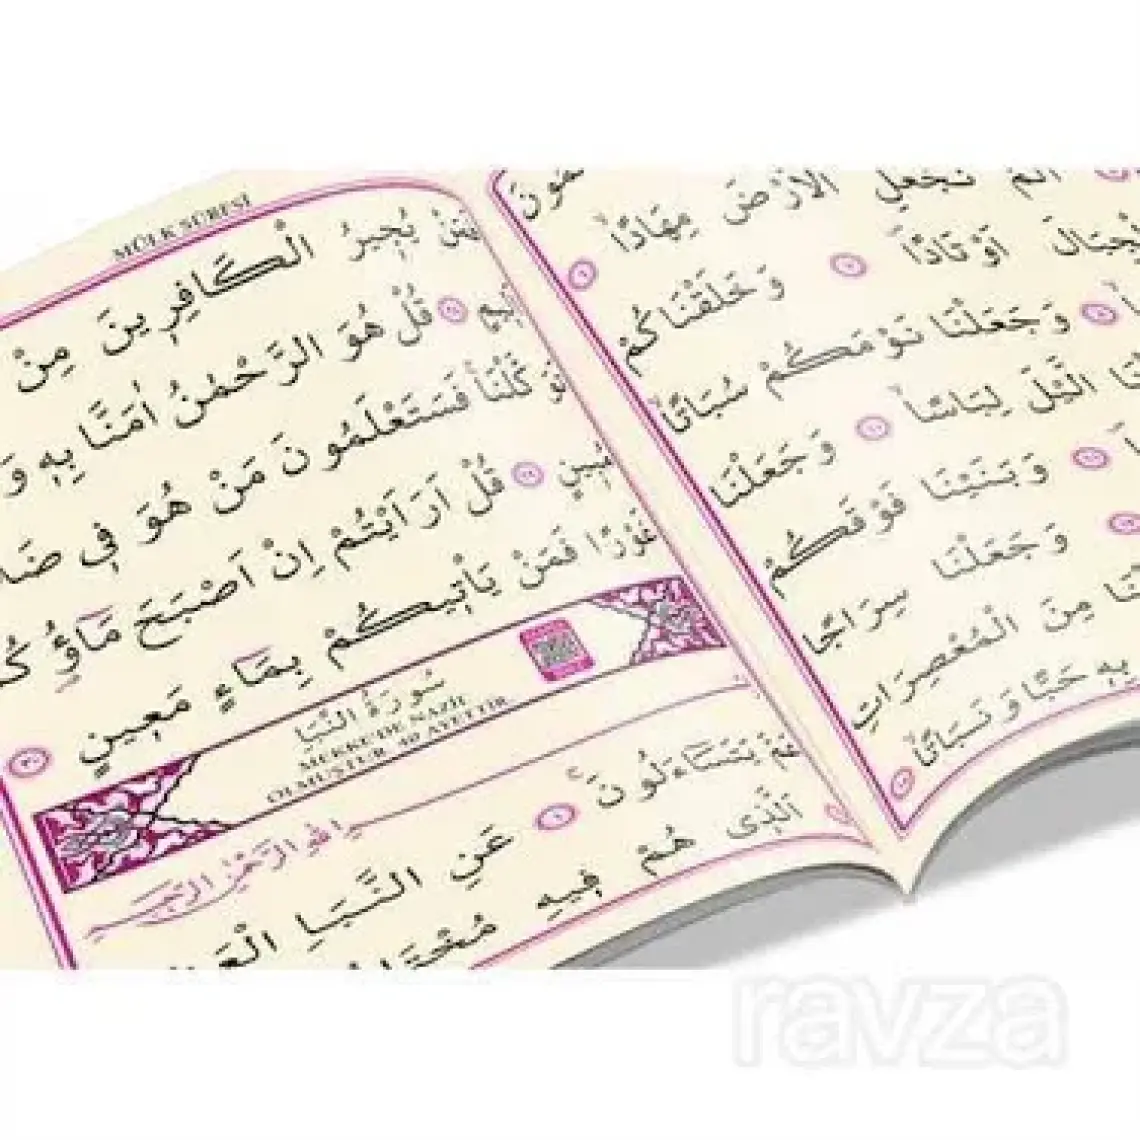 MÜLK SÛRESİ
يُجِيرُ الْكَافِرِينَ مِنْ
قُلْ هُوَ الرَّحْمٰنُ اٰمَنَّا بِهِ وَ
تَوَكَّلْنَا فَسَتَعْلَمُونَ مَنْ هُوَ فِى
قُلْ اَرَاَيْتُمْ اِنْ اَصْبَحَ مَٓاؤُ
غَوْرًا فَمَنْ يَأْتِيكُمْ بِمَٓاءٍ مَعِينٍ ٣٠
سُورَةُ النَّبَاِ
MEKKE'DE NAZİL
OLMUŞTUR. 40 AYETTİR
اللهِ الرَّحْمٰنِ الرَّحِيمِ
عَمَّ يَتَسَٓاءَلُونَ ١ عَنِ النَّبَاِ
اَلَّذِى هُمْ فِيهِ
اَلَمْ نَجْعَلِ الْاَرْضَ مِهَادًا ٦
اَوْتَادًا ٧ وَخَلَقْنَاكُمْ
وَجَعَلْنَا نَوْمَكُمْ سُبَاتًا
الَّيْلَ لِبَاسًا ١٠ وَجَعَلْنَا
وَبَنَيْنَا فَوْقَكُمْ
وَجَعَلْنَا سِرَاجًا
مِنَ الْمُعْصِرَاتِ
بِهِ حَبًّا وَنَبَاتًا ١٥
ravza